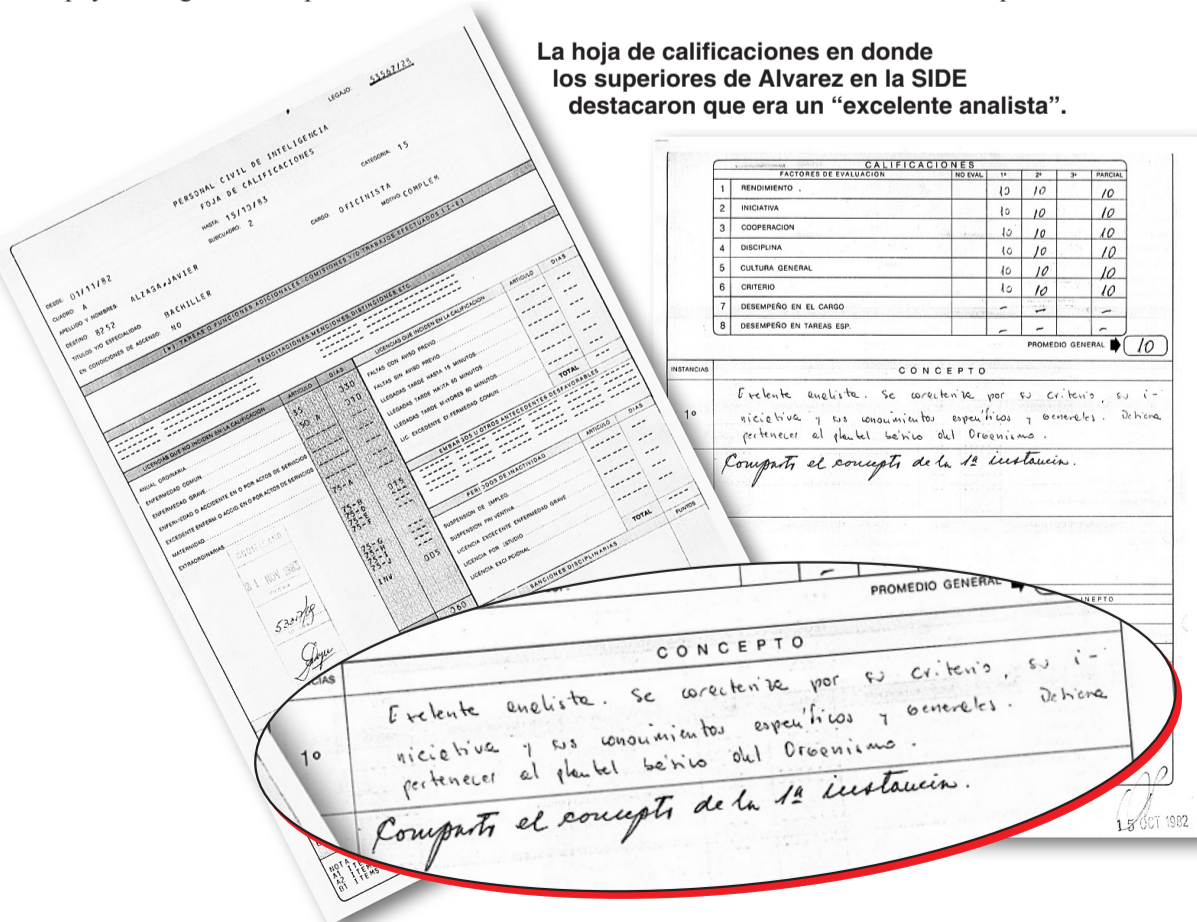 La hoja de calificaciones en donde
los superiores de Alvarez en la SIDE
destacaron que era un “excelente analista”.
LEGAJO: 53567/25
PERSONAL CIVIL DE INTELIGENCIA
FOJA DE CALIFICACIONES
HASTA: 15/10/83 CATEGORIA: 15
SUBCUADRO: 2 CARGO: OFICINISTA MOTIVO: COMPLEM
DESDE: 01/11/82
CUADRO: A
APELLIDO Y NOMBRES: ALZASA,JAVIER
DESTINO: 8252
TITULOS Y/O ESPECIALIDAD: BACHILLER
EN CONDICIONES DE ASCENSO: NO
TAREAS O FUNCIONES ADICIONALES-COMISIONES Y/O TRABAJOS EFECTUADOS
FELICITACIONES, MENCIONES, DISTINCIONES, ETC.
LICENCIAS QUE NO INCIDEN EN LA CALIFICACION ARTICULO DIAS
ANUAL ORDINARIA 35 330
ENFERMEDAD COMUN 010
ENFERMEDAD GRAVE
ENFERMEDAD O ACCIDENTE EN O POR ACTOS DE SERVICIOS
EXCEDENTE ENFERM O ACCID. EN O POR ACTOS DE SERVICIOS
MATERNIDAD 75-A
EXTRAORDINARIAS 015
75-G
75-H
75-I
75-J
INV 005
060
LICENCIAS QUE INCIDEN EN LA CALIFICACION ARTICULO DIAS
FALTAS CON AVISO PREVIO
FALTAS SIN AVISO PREVIO
LLEGADAS TARDE HASTA 15 MINUTOS
LLEGADAS TARDE HASTA 60 MINUTOS
LLEGADAS TARDE MAYORES 60 MINUTOS
LIC EXCEDENTE ENFERMEDAD COMUN
TOTAL
EMBARGOS U OTROS ANTECEDENTES DESFAVORABLES
PERIODOS DE INACTIVIDAD ARTICULO DIAS
SUSPENSION DE EMPLEO
SUSPENSION PREVENTIVA
LICENCIA EXCEDENTE ENFERMEDAD GRAVE
LICENCIA POR ESTUDIO
LICENCIA EXCEPCIONAL
TOTAL
SANCIONES DISCIPLINARIAS PUNTOS
21 NOV 1983
CALIFICACIONES
FACTORES DE EVALUACION NO EVAL. 1º 2º 3º PARCIAL
1 RENDIMIENTO 10 10 10
2 INICIATIVA 10 10 10
3 COOPERACION 10 10 10
4 DISCIPLINA 10 10 10
5 CULTURA GENERAL 10 10 10
6 CRITERIO 10 10 10
7 DESEMPEÑO EN EL CARGO – – –
8 DESEMPEÑO EN TAREAS ESP. – – –
PROMEDIO GENERAL 10
INSTANCIAS CONCEPTO
1º Exelente analista. Se caracteriza por su criterio, su i-
niciativa y sus conocimientos específicos y generales. Debiera
pertenecer al plantel básico del Organismo.
Comparto el concepto de la 1ª instancia.
PROMEDIO GENERAL
INEPTO
CIAS CONCEPTO
1º Exelente analista. Se caracteriza por su criterio, su i-
niciativa y sus conocimientos específicos y generales. Debiera
pertenecer al plantel básico del Organismo.
Comparto el concepto de la 1ª instancia.
15 OCT 1982
NOTA
A1 ITE
A2 ITEM
B1 ITEMS